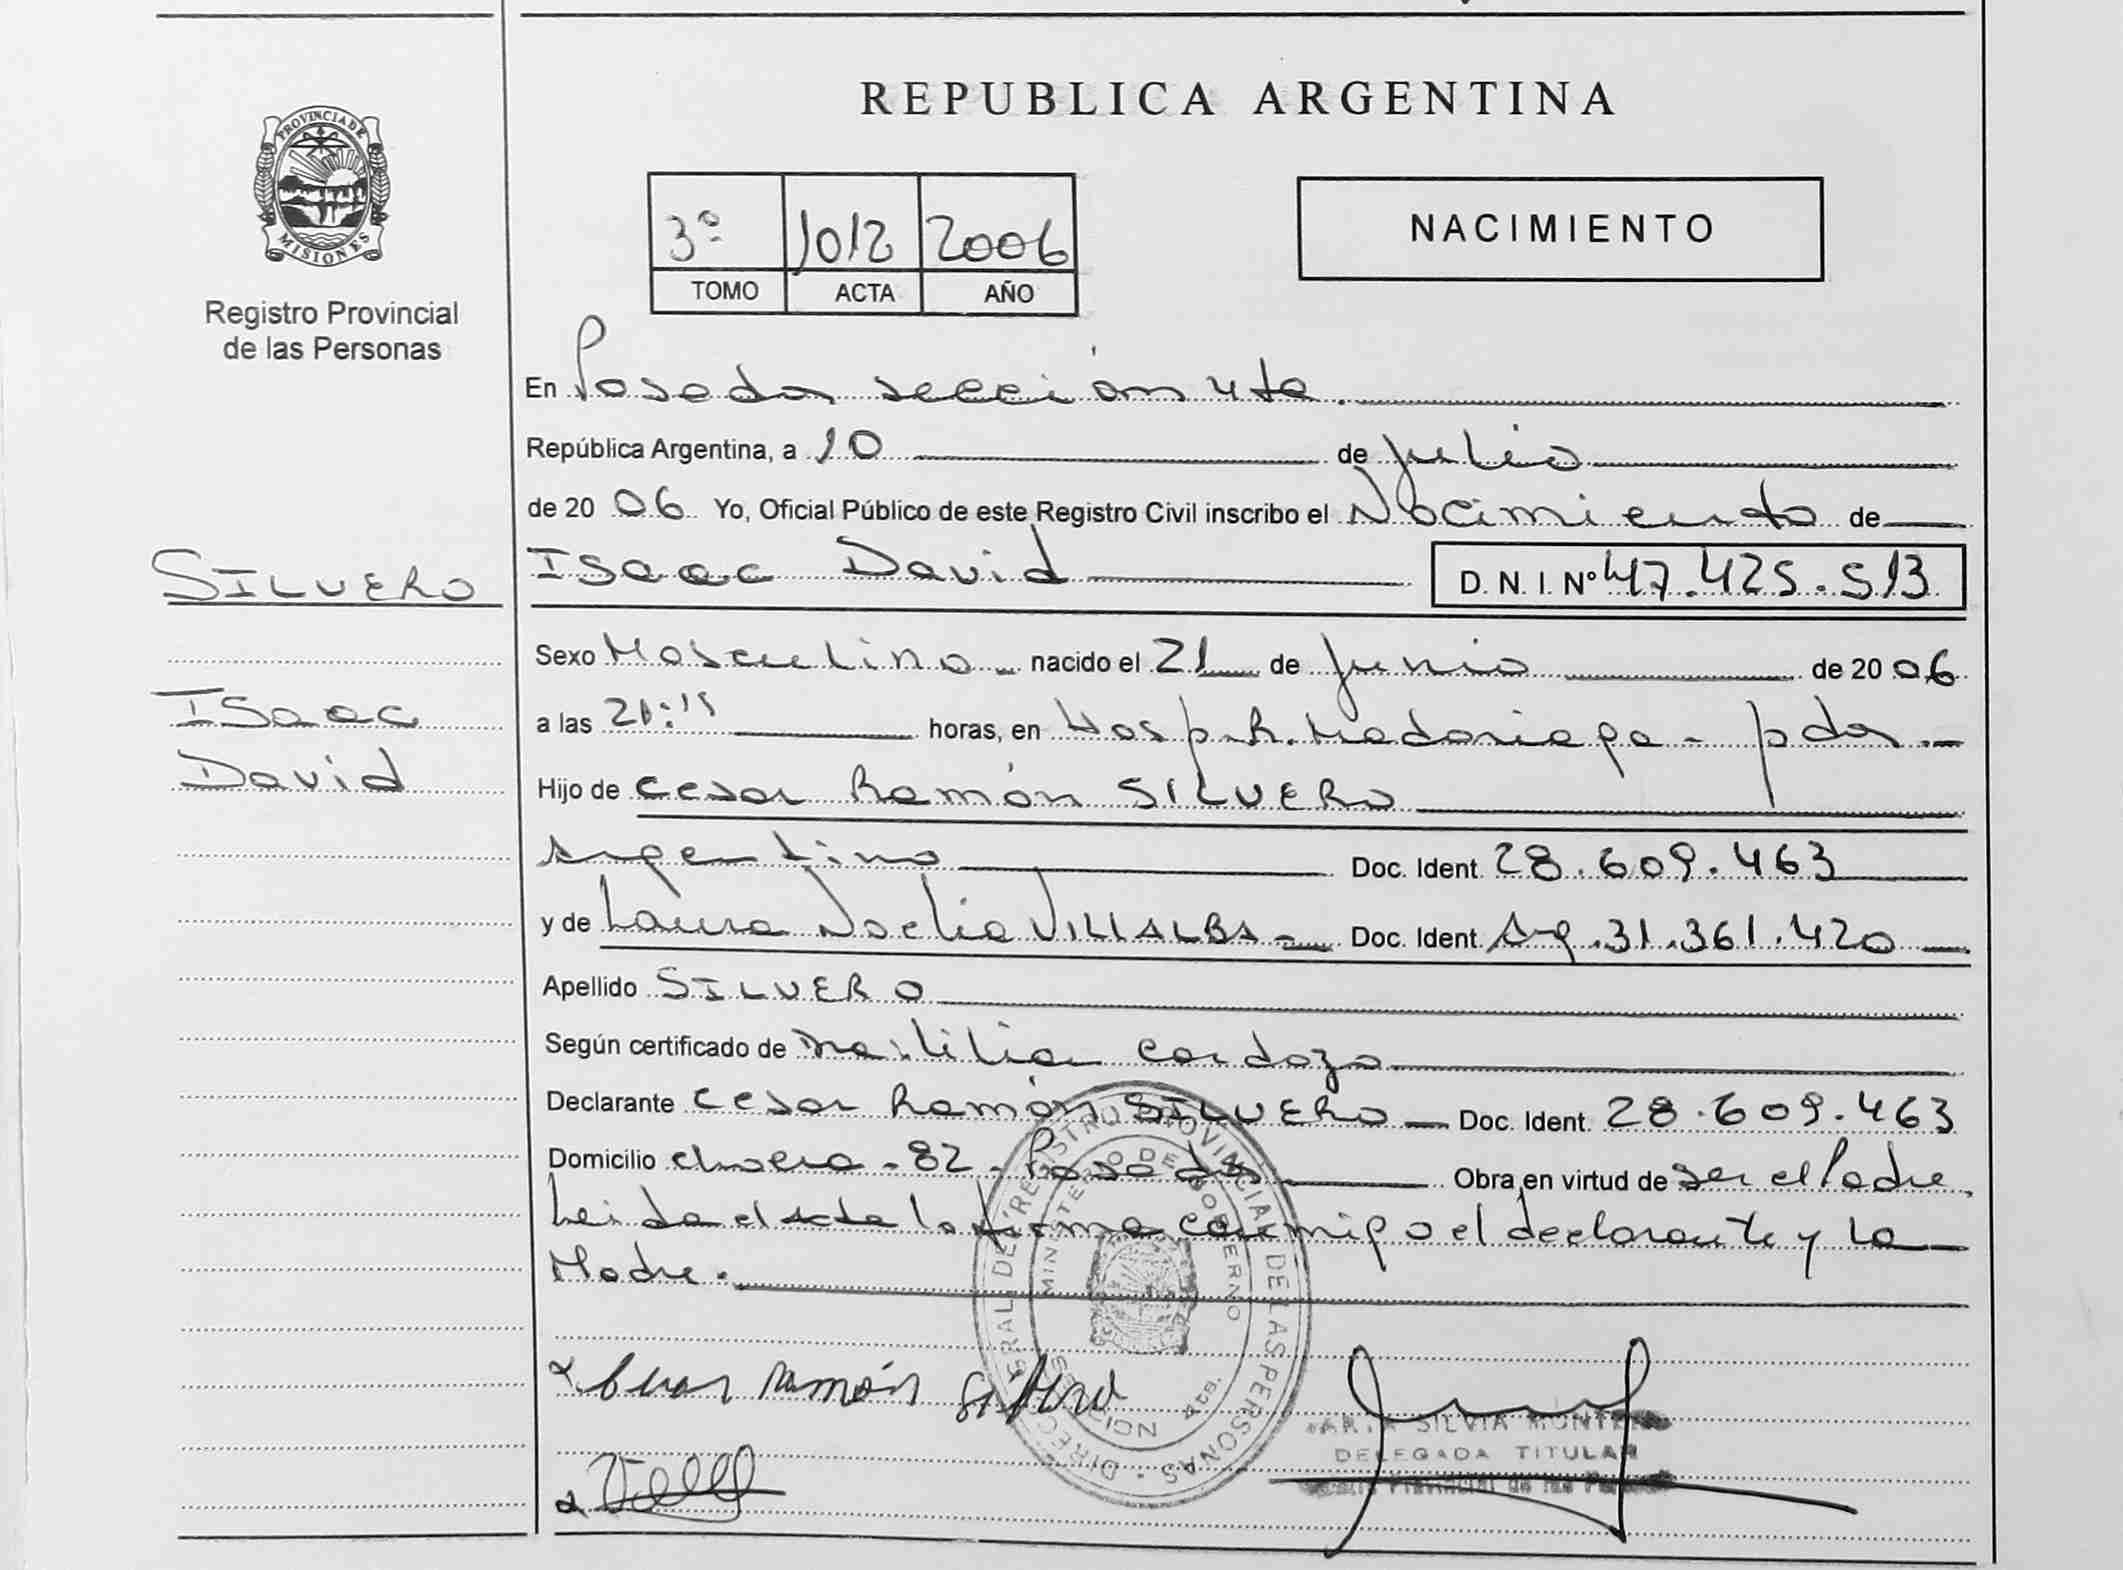 REPUBLICA ARGENTINA
PROVINCIA DE
MISIONES
Registro Provincial
de las Personas
3º 1012 2006
TOMO ACTA AÑO
NACIMIENTO
En Posadas sección 4ta.
República Argentina, a 10 de julio
de 2006 Yo, Oficial Público de este Registro Civil inscribo el Nacimiento de
SILVERO
Isaac David D. N. I. Nº 47.425.513
Sexo Masculino nacido el 21 de junio de 2006
Isaac
David
a las 21:15 horas, en Hosp. R. Madariaga - pdas
Hijo de Cesar Ramón SILVERO
Argentino Doc. Ident. 28.609.463
y de Laura Noelia VILLALBA Doc. Ident. Arg. 31.361.420
Apellido SILVERO
Según certificado de Lilian Cardozo
Declarante Cesar Ramón SILVERO Doc. Ident. 28.609.463
Domicilio 82 - Posadas Obra en virtud de ser el Padre.
Leida el acta la firma conmigo el declarante y la
Madre.
Cesar Ramón Silvero
DIRECCION GENERAL DEL REGISTRO PROVINCIAL DE LAS PERSONAS
MINISTERIO DE GOBIERNO
SECCION 4ta.
SILVIA
DELEGADA TITULAR
Provincial de las Personas